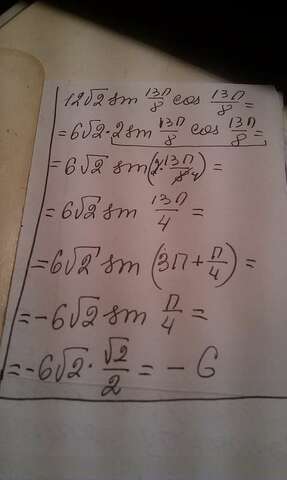 12√2 sin 13π/8 cos 13π/8 =
= 6√2 · 2 sin 13π/8 cos 13π/8 =
= 6√2 sin(2 · 13π/8 4) =
= 6√2 sin 13π/4 =
= 6√2 sin (3π + π/4) =
= -6√2 sin π/4 =
= -6√2 · √2/2 = - 6